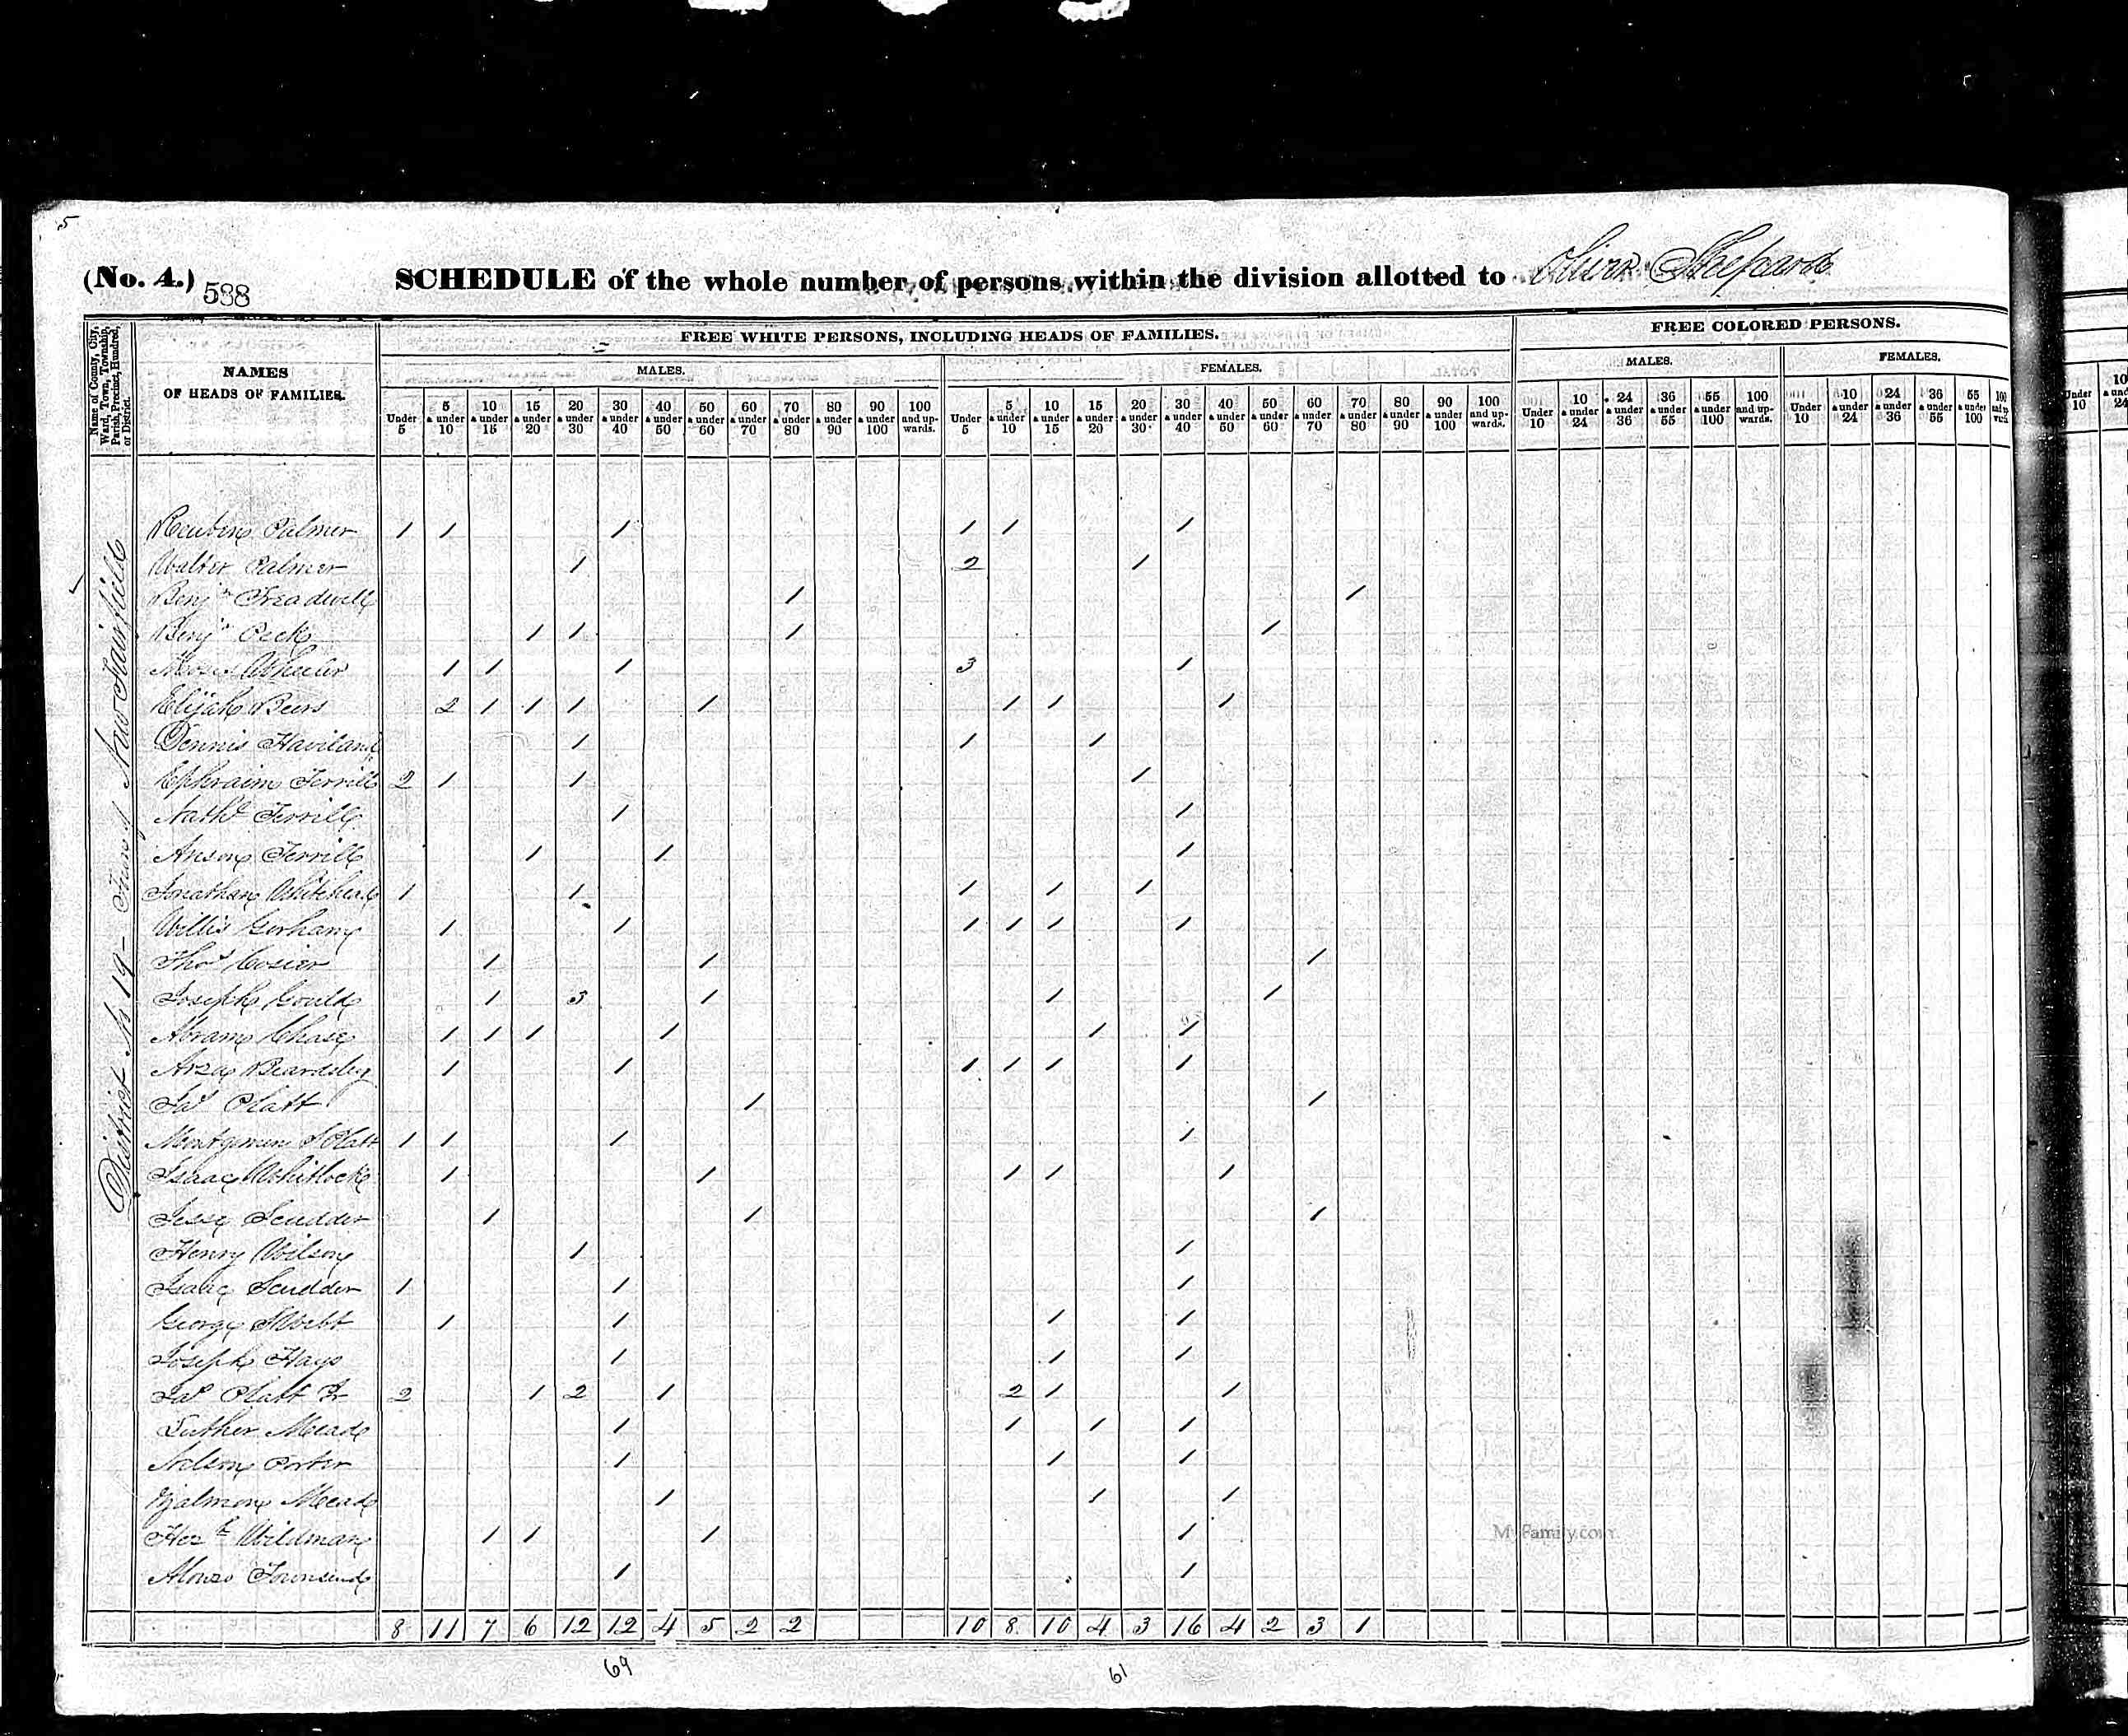 5
(No. 4.) 538 SCHEDULE of the whole number of persons within the division allotted to Shepard
Name of County, City, Ward, Town, Township, Parish, Precinct, Hundred, or District.
NAMES OF HEADS OF FAMILIES.
FREE WHITE PERSONS, INCLUDING HEADS OF FAMILIES.
FREE COLORED PERSONS.
MALES. FEMALES. MALES. FEMALES.
Under 5 5 & under 10 10 & under 15 15 & under 20 20 & under 30 30 & under 40 40 & under 50 50 & under 60 60 & under 70 70 & under 80 80 & under 90 90 & under 100 100 and upwards. Under 5 5 & under 10 10 & under 15 15 & under 20 20 & under 30 30 & under 40 40 & under 50 50 & under 60 60 & under 70 70 & under 80 80 & under 90 90 & under 100 100 and upwards. Under 10 10 & under 24 24 & under 36 36 & under 55 55 & under 100 100 and upwards. Under 10 10 & under 24 24 & under 36 36 & under 55 55 & under 100 100 and upw
Under 10
District No 19 - Town of New Fairfield
Reuben Palmer 1 1 1 1 1 1
Walter Palmer 1 2 1
Benjn Treadwell 1 1
Benjn Peck 1 1 1 1
Moses Wheeler 1 1 1 3 1
Elijah Beers 2 1 1 1 1 1 1 1
Dennis Haviland 1 1 1
Ephraim Terrill 2 1 1 1
Nathl Terrill 1 1
Anson Terrill 1 1 1
Jonathan Whitehead 1 1 1 1 1
Willis Gorham 1 1 1 1 1 1
Thos Cosier 1 1 1
Joseph Gould 1 3 1 1 1
Abram Chase 1 1 1 1 1 1
Arza Beardsley 1 1 1 1 1 1
Jas Platt 1 1
Montgomery S Platt 1 1 1 1
Isaac Whitlock 1 1 1 1 1
Jesse Scudder 1 1 1
Henry Wilson 1 1
Isaac Scudder 1 1 1
George Webb 1 1 1 1
Joseph Hays 1 1 1
Jas Platt Jr 2 1 2 1 2 1 1
Luther Mead 1 1 1 1
Nelson Porter 1 1 1
Zalmon Mead 1 1 1
Hezh Wildman 1 1 1 1
Alonzo Townsend 1 1
8 11 7 6 12 12 4 5 2 2 10 8 10 4 3 16 4 2 3 1
69 61
MyFamily.com